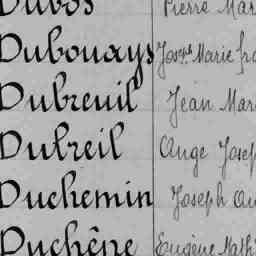 Dubos Pierre Mar
Dubouays Joseph Marie fra
Dubreuil Jean Mar
Dubreil Ange Josep
Duchemin Joseph Au
Duchêne Eugène Math